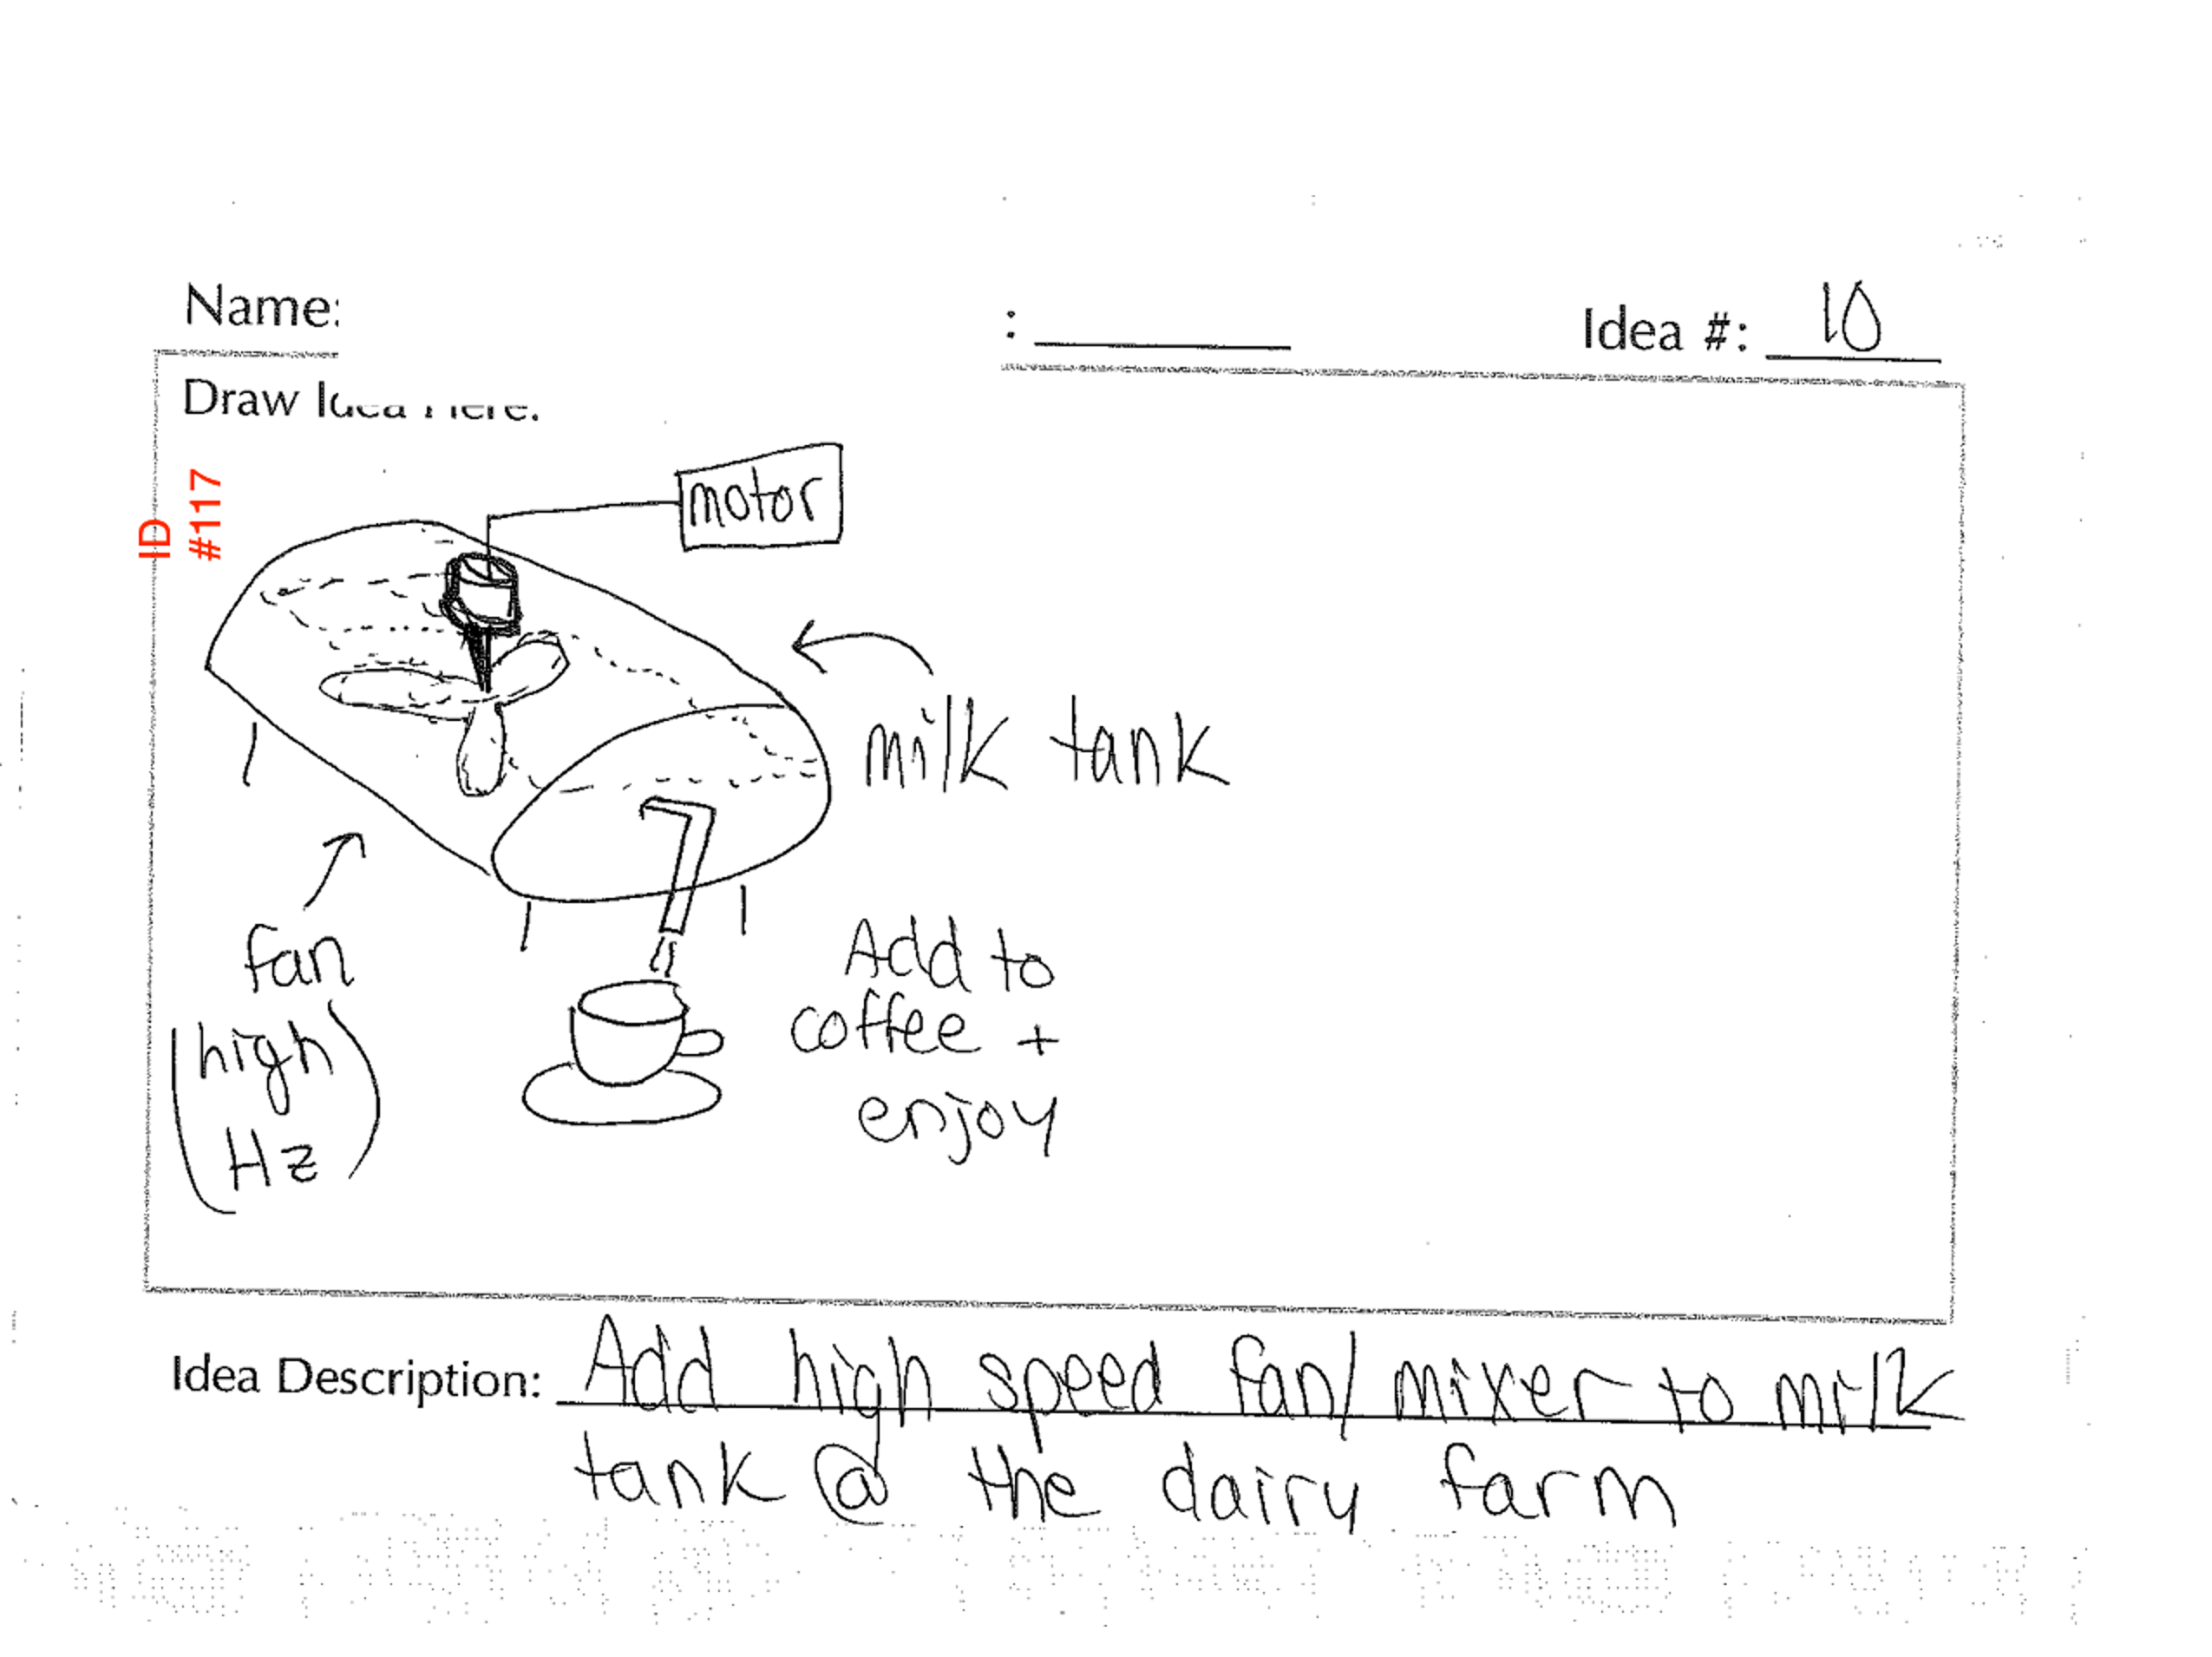 Name:
:
Idea #: 10
Draw Idea Here:
ID
#117
motor
milk tank
fan
(high
Hz)
Add to
coffee +
enjoy
Idea Description: Add high speed fan/mixer to milk
tank @ the dairy farm